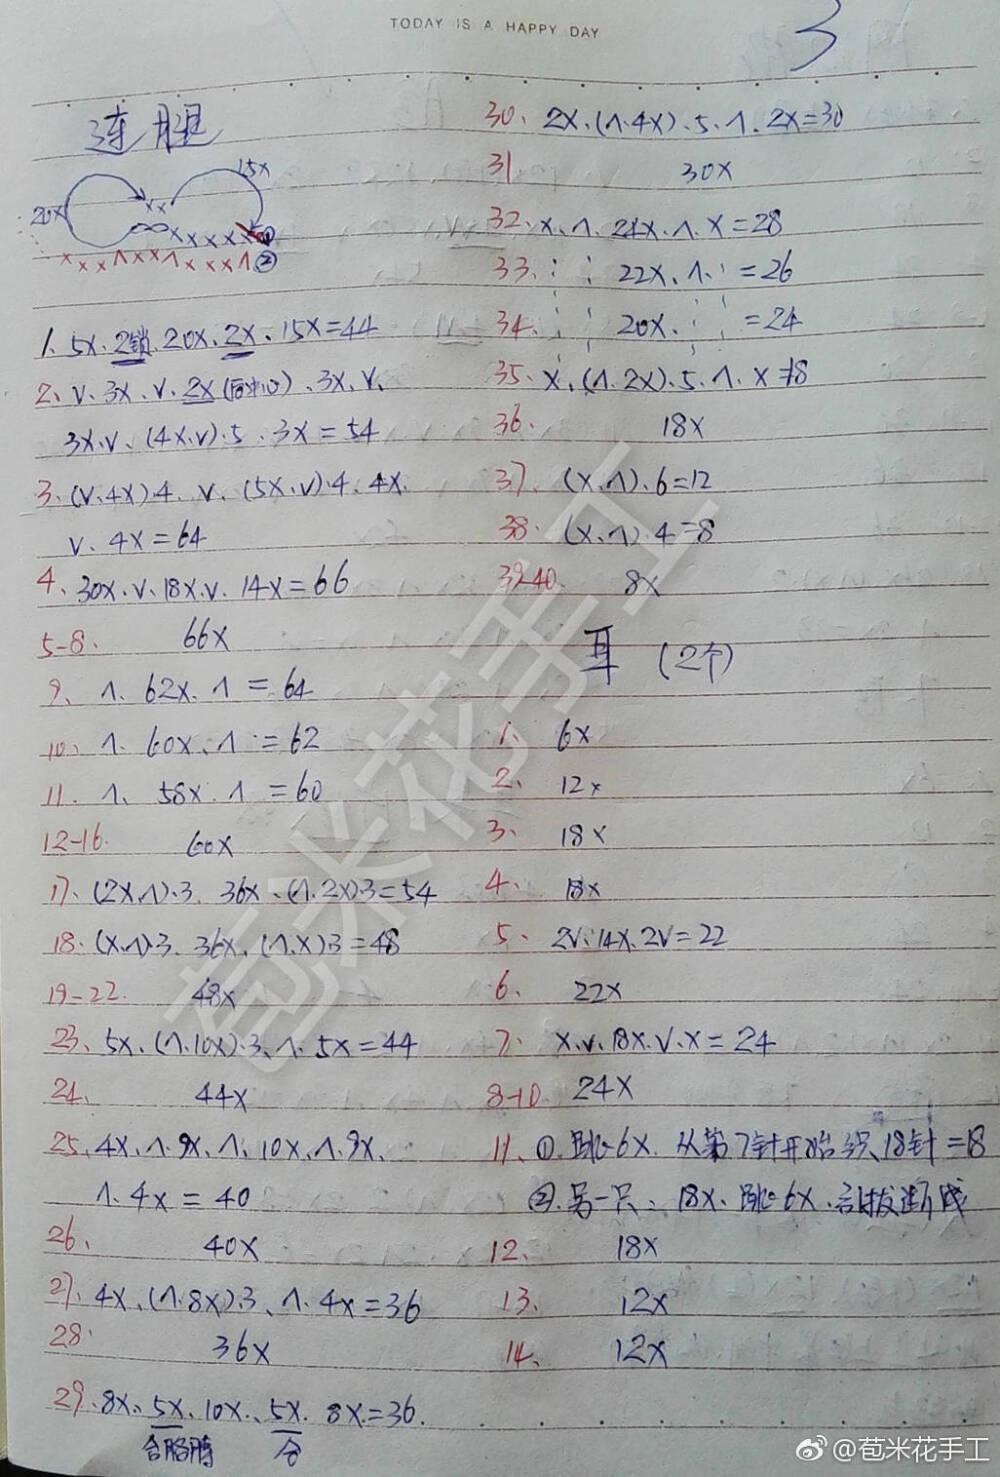 TODAY IS A HAPPY DAY
3
连腿
15X
20X
x x
x x x x x
x x x ʌ x x ʌ x x x ʌ ②
1. 5X. 2锁. 20X. 2X. 15X=44
2. V. 3X. V. 2X(后中心). 3X. V.
3X. V. (4X. V). 5. 3X=54
3. (V. 4X) 4. V. (5X. V). 4. 4X.
V. 4X=64
4. 30X. V. 18X. V. 14X=66
5-8. 66X
9. ʌ. 62X. ʌ = 64
10. ʌ. 60X. ʌ = 62
11. ʌ. 58X. ʌ = 60
12-16. 60X
17. (2X. ʌ). 3. 36X. (ʌ. 2X). 3=54
18. (X. ʌ). 3. 36X. (ʌ. X) 3=48
19-22. 48X
23. 5X. (ʌ. 10X). 3. ʌ. 5X=44
24. 44X
25. 4X. ʌ. 9X. ʌ. 10X. ʌ. 9X.
ʌ. 4X = 40
26. 40X
27. 4X. (ʌ. 8X). 3. ʌ. 4X=36
28. 36X
29. 8X. 5X. 10X. 5X. 8X=36.
合胳膊 合
30. 2X. (ʌ. 4X). 5. ʌ. 2X=30
31 30X
32. X. ʌ. 24X. ʌ. X=28
33. ⋮ ⋮ 22X. ʌ. ⋮ =26
34. ⋮ ⋮ 20X. ⋮ ⋮ =24
35. X. (ʌ. 2X). 5. ʌ. X=18
36. 18X
37. (X. ʌ). 6=12
38. (X. ʌ). 4=8
39-40. 8X
耳 (2个)
1. 6X
2. 12X
3. 18X
4. 18X
5. 2V. 14X. 2V=22
6. 22X
7. X. V. 18X. V. X=24
8-10. 24X
11. ①. 跳6X. 从第7针开始织, 18针=18
②. 另一只: 18X. 跳6X. 引拔断线
12. 18X
13. 12X
14. 12X
苞米花手工
@苞米花手工